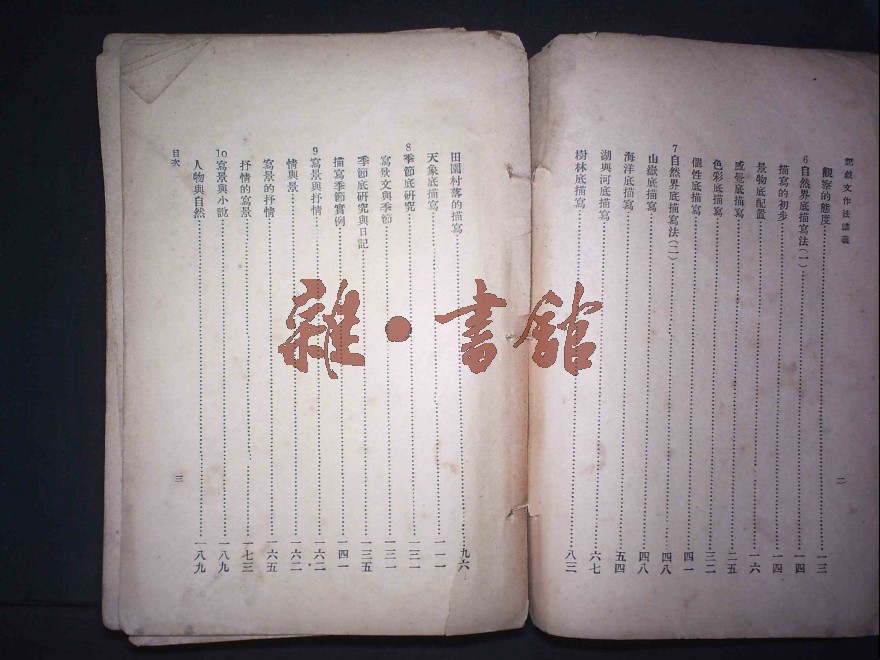 觀察的態度……一三
6 自然界底描寫法(一)……一四
描寫的初步……一四
景物底配置……一六
感覺底描寫……二五
色彩底描寫……三二
個性底描寫……四一
7 自然界底描寫法(二)……四八
山嶽底描寫……四八
海洋底描寫……五四
湖與河底描寫……六七
樹林底描寫……八三
二
田園村落的描寫……九六
天象底描寫……一一一
8 季節底研究……一三一
寫景文與季節……一三一
季節底研究與日記……一三五
描寫季節實例……一四一
9 寫景與抒情……一六二
情與景……一六二
寫景的抒情……一六五
抒情的寫景……一七三
10 寫景與小說……一八九
人物與自然……一八九
目次
三
雜·書館